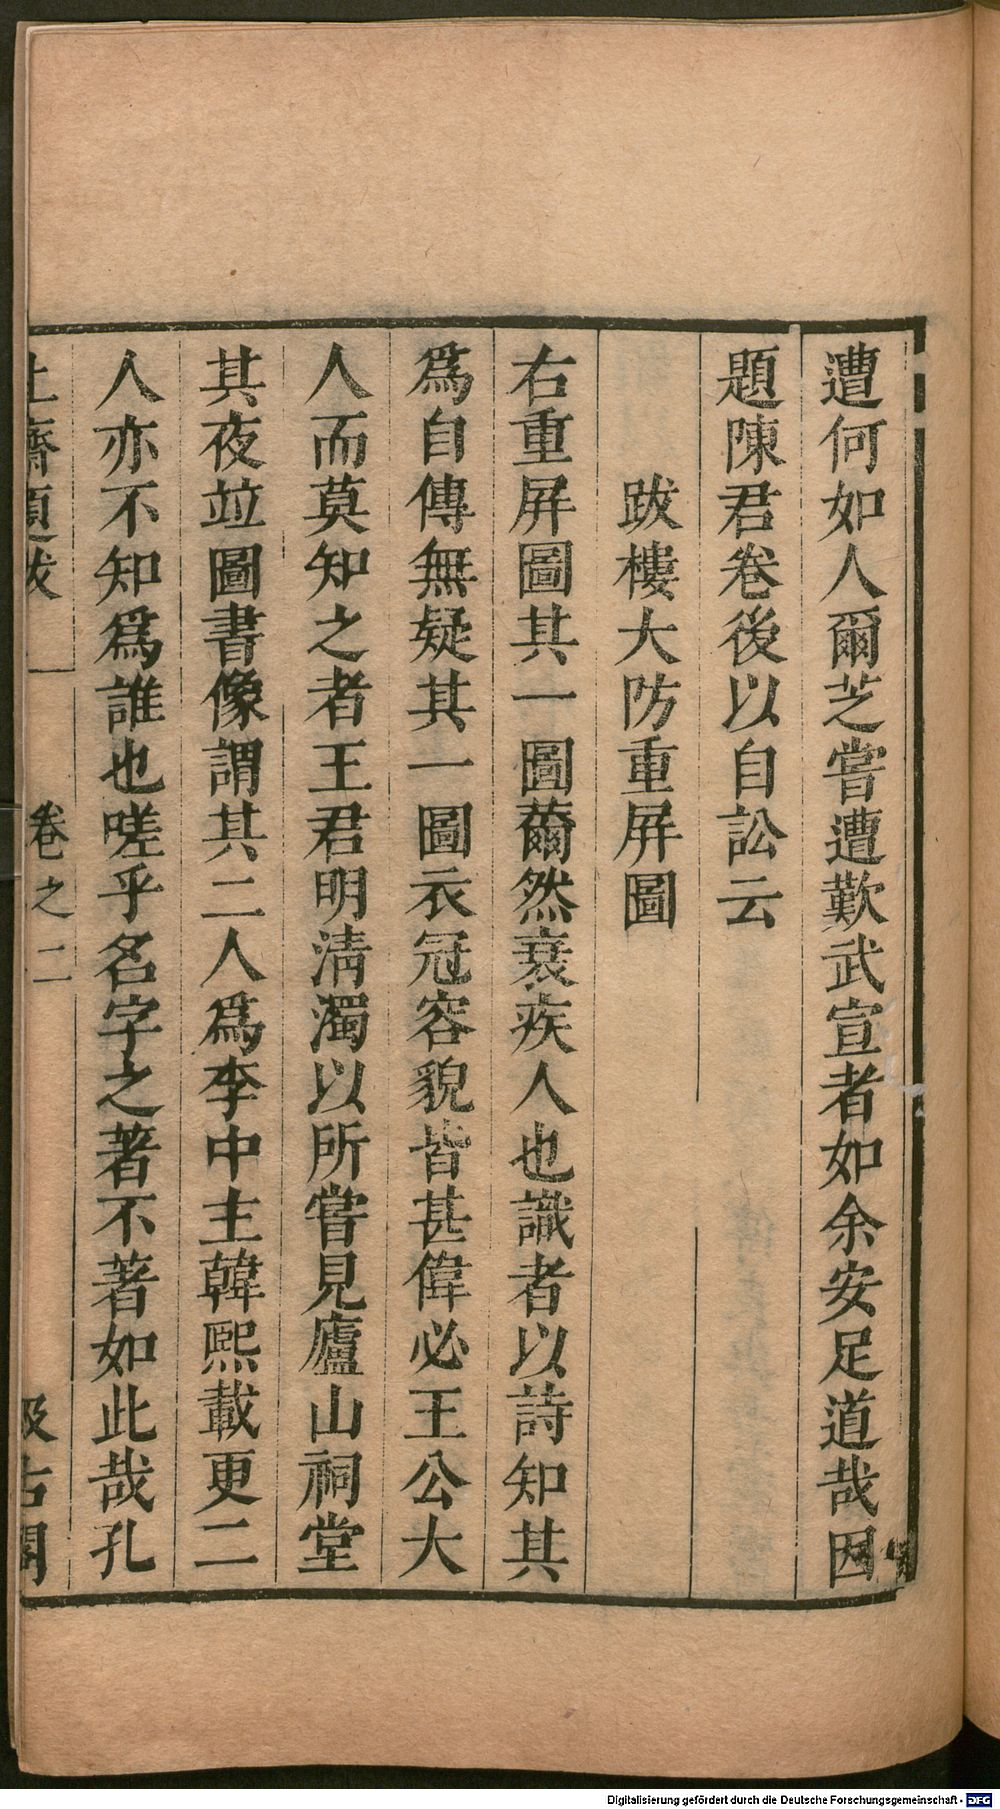 遭何如人爾芝嘗遭歎武宣者如余安足道哉因
題陳君卷後以自訟云
跋樓大防重屏圖
右重屏圖其一圖薾然衰疾人也識者以詩知其
爲自傳無疑其一圖衣冠容貌皆甚偉必王公大
人而莫知之者王君明淸濁以所嘗見廬山祠堂
其夜竝圖書像謂其二人爲李中主韓熙載更二
人亦不知爲誰也嗟乎名字之著不著如此哉孔
止齋題跋 卷之二 汲古閣
Digitalisierung gefördert durch die Deutsche Forschungsgemeinschaft - DFG